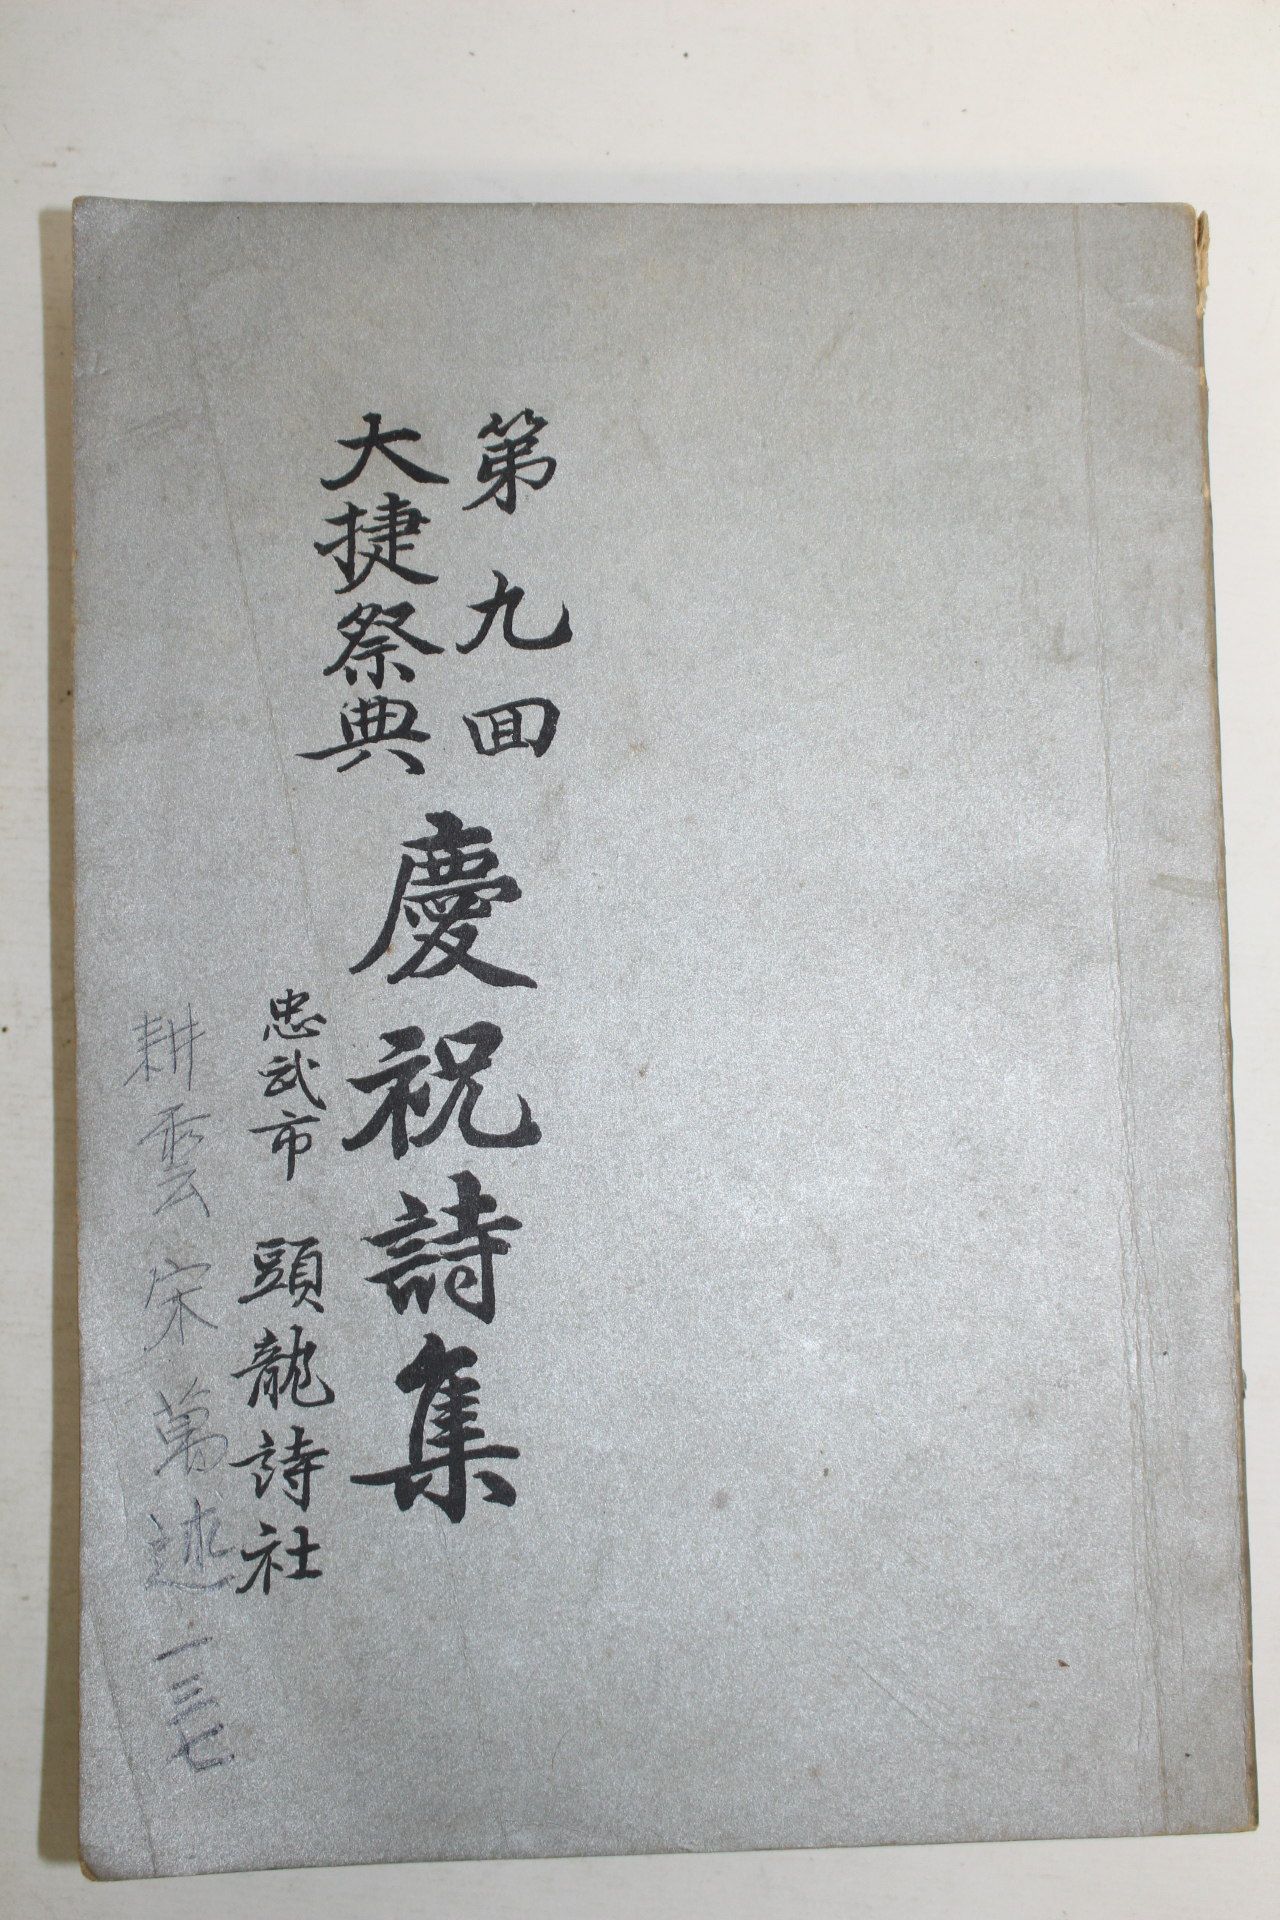 第九回
大捷祭典
慶祝詩集
忠武市 頭龍詩社
耕雲宋萬述 一三七